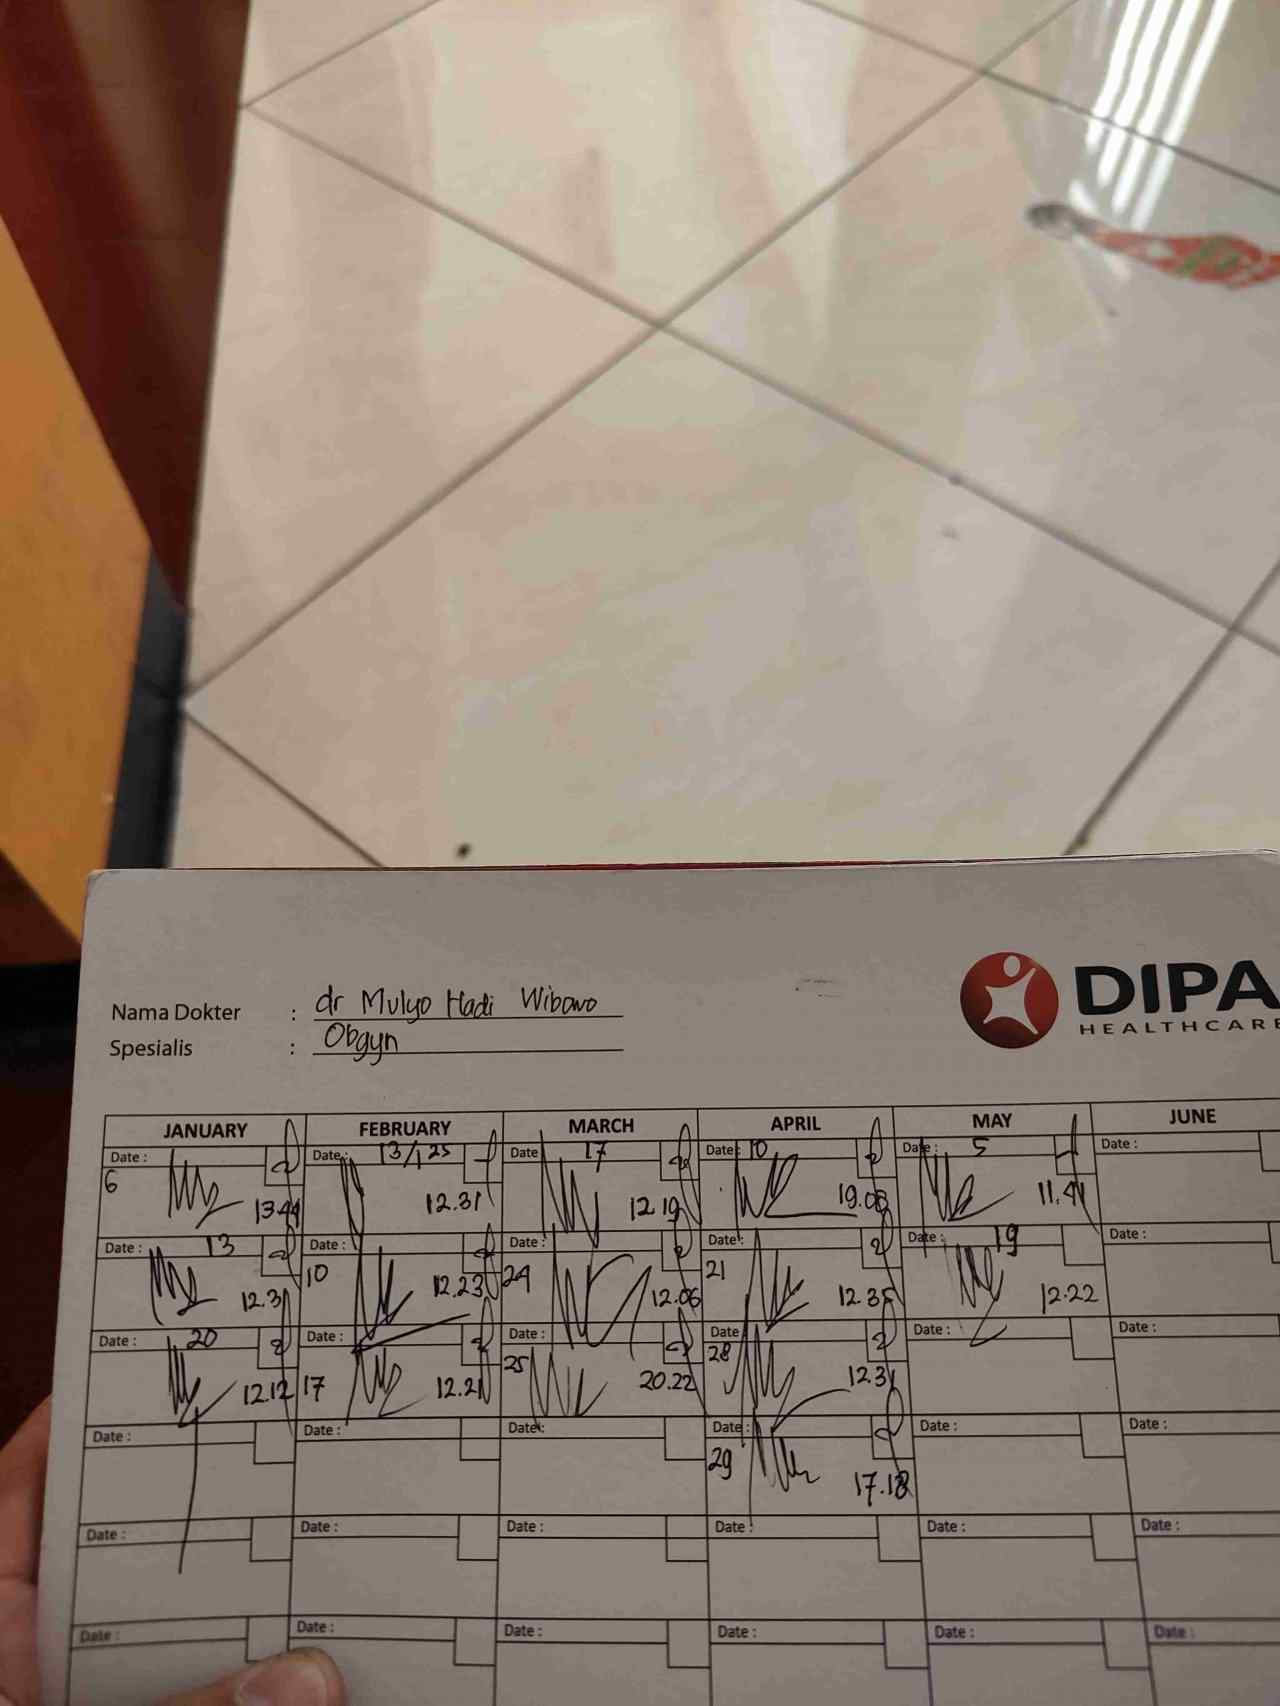 DIPA
HEALTHCARE
Nama Dokter : dr Mulyo Hadi Wibowo
Spesialis : Obgyn
JANUARY FEBRUARY MARCH APRIL MAY JUNE
Date : Date : 13/1 25 Date 17 Date : 10 Date : 5 Date :
6 13.44 12.31 12.19 19.08 11.41
Date : 13 Date : Date : Date : Date : 19 Date :
12.31 10 12.23 24 12.06 21 12.35 12.22
Date : 20 Date : Date : Date Date : Date :
12.12 17 12.21 25 20.22 28 12.31
Date : Date : Date : Date : Date : Date :
29 17.18
Date : Date : Date : Date : Date : Date :
Date : Date : Date : Date : Date : Date :